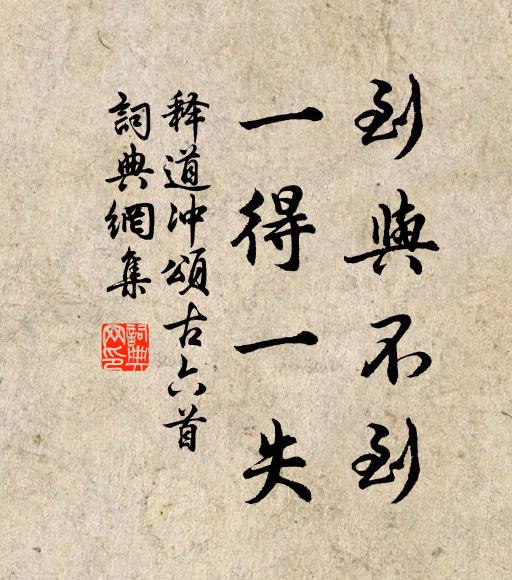 到與不到
一得一失
释道冲頌古六首
詞典網集
詞典网印